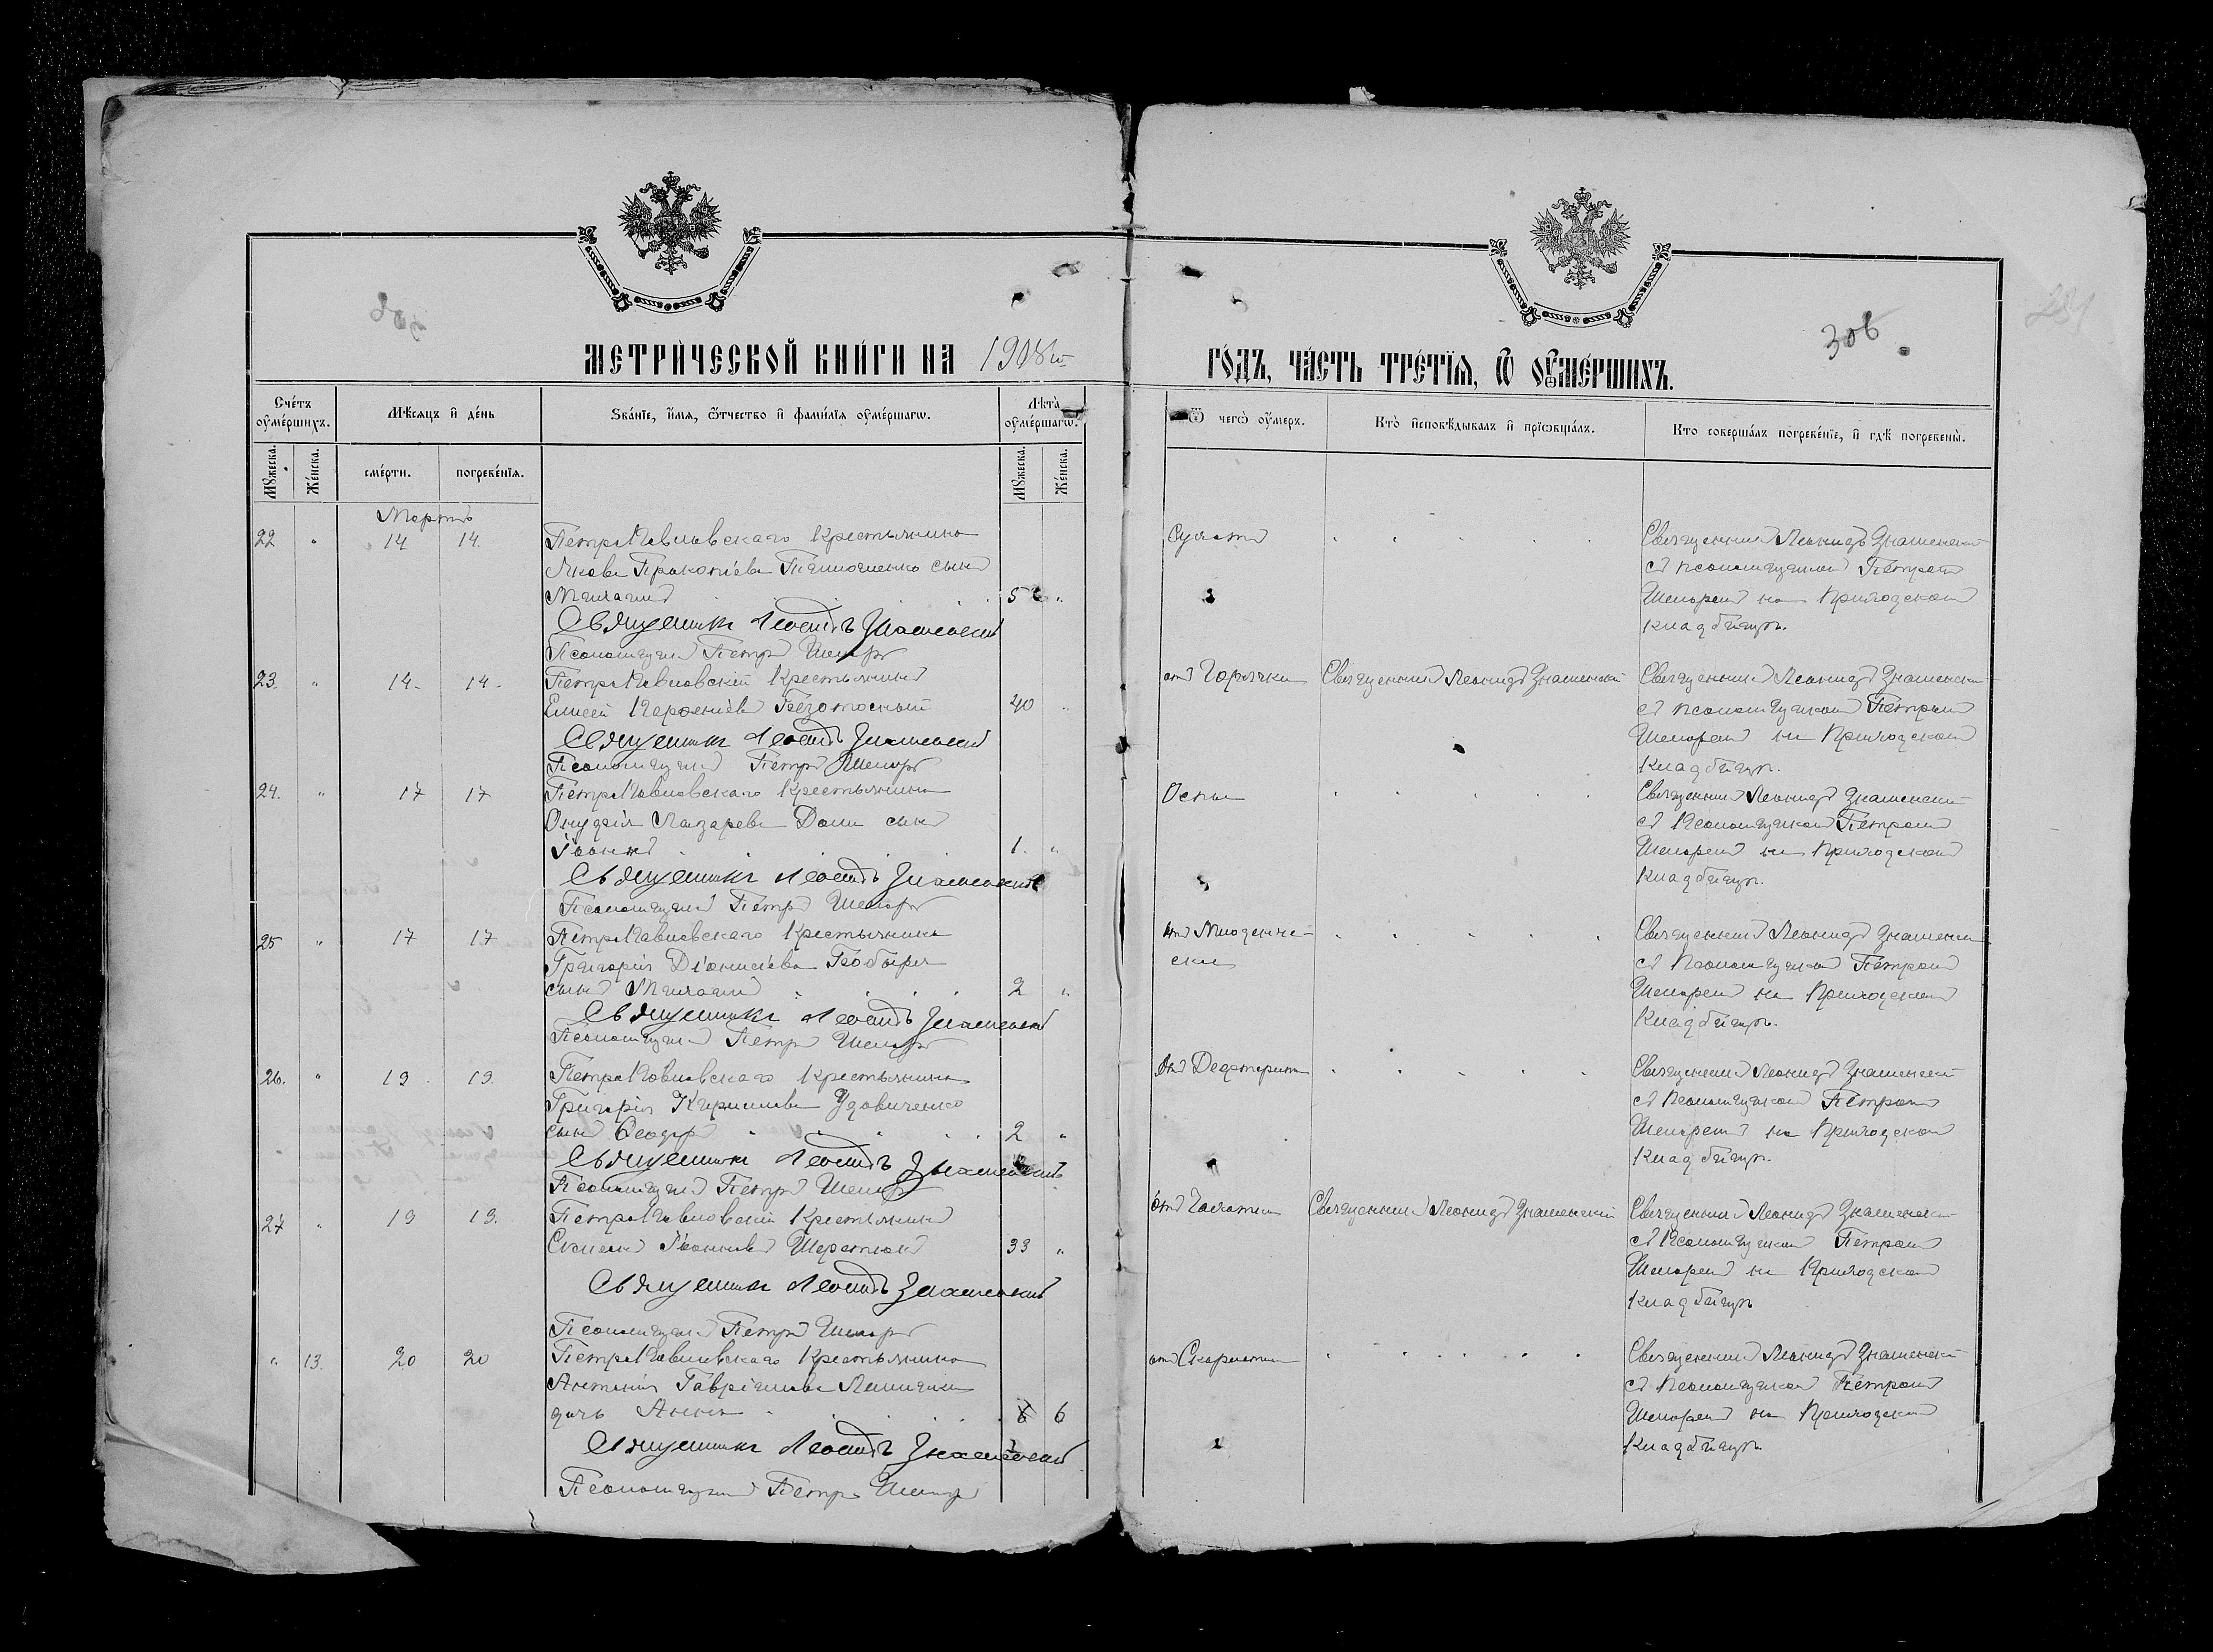 306
281
МЕТРИ́ЧЕСКОЙ КНИ́ГИ НА 1908й ГО́ДЪ, ЧА́СТЬ ТРЕ́ТЇѦ, Ѿ ОУМЕ́РШИХЪ.
Сче́тъ оуме́ршихъ.
Мѣ́сяцъ и҆ де́нь
Зва́нїе, и҆́мѧ, ѻ҆́тчество и҆ фами́лїѧ оуме́ршагѡ.
Лѣ́та оуме́ршагѡ.
Ѿ чегѡ̀ оу҆́меръ.
Кто̀ и҆сповѣ́дывалъ и҆ прїѡбща́лъ.
Кто соверша́лъ погребе́нїе, и҆ гдѣ̀ погребены̀.
Мꙋ́жеска.
Же́нска.
сме́рти.
погребе́нїѧ.
Мꙋ́жеска.
Же́нска.
Мартъ
22 " 14 14. Петро Павловскаго крестьянина
Якова Прокопіева сынъ
Михаилъ 5 "
Священникъ Леонидъ Знаменскій
Псаломщикъ Петръ
Священникъ Леонидъ Знаменскій
съ псаломщикомъ Петромъ
на приходскомъ
кладбищѣ.
23. " 14. 14. Петро Павловскій крестьянинъ
Елисей Парѳеніевъ Безотосный 40 "
Священникъ Леонидъ Знаменскій
Псаломщикъ Петръ
отъ Горячки Священникъ Леонидъ Знаменскій Священникъ Леонидъ Знаменскій
съ псаломщикомъ Петромъ
на приходскомъ
кладбищѣ.
24. " 17 17 Петро Павловскаго крестьянина
Онуфрія Лазарева сынъ
Іоаннъ 1. "
Священникъ Леонидъ Знаменскій
Псаломщикъ Петръ
Оспы Священникъ Леонидъ Знаменскій
съ псаломщикомъ Петромъ
на приходскомъ
кладбищѣ.
25 " 17 17 Петро Павловскаго крестьянина
Григорія Діонисіева
сынъ Михаилъ 2 "
Священникъ Леонидъ Знаменскій
Псаломщикъ Петръ
отъ Младенче-
ской
Священникъ Леонидъ Знаменскій
съ псаломщикомъ Петромъ
на приходскомъ
кладбищѣ.
26. " 19. 19. Петро Павловскаго крестьянина
Григорія Кириллова Удовиченко
сынъ Ѳеодоръ 2 "
Священникъ Леонидъ Знаменскій
Псаломщикъ Петръ
отъ Дефтерита Священникъ Леонидъ Знаменскій
съ псаломщикомъ Петромъ
на приходскомъ
кладбищѣ.
27 " 19 19. Петро Павловскій крестьянинъ
Іоанновъ Шереметъ 33 "
Священникъ Леонидъ Знаменскій
Псаломщикъ Петръ
отъ Чахотки Священникъ Леонидъ Знаменскій Священникъ Леонидъ Знаменскій
съ псаломщикомъ Петромъ
на приходскомъ
кладбищѣ
" 13. 20 20 Петро Павловскаго крестьянина
Антонія Гавріилова
дочь Анна 6
Священникъ Леонидъ Знаменскій
Псаломщикъ Петръ
отъ Скарлатины Священникъ Леонидъ Знаменскій
съ псаломщикомъ Петромъ
на приходскомъ
кладбищѣ.